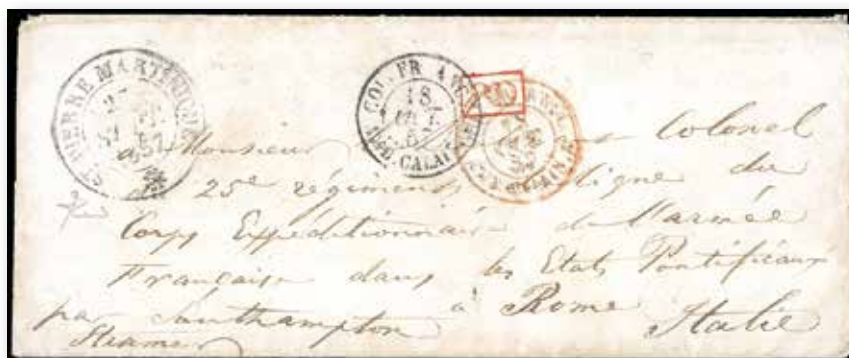 ST PIERRE MARTINIQUE
57
COL. FR. ANG.
18
AMB. CALAIS
PD
a Monsieur Colonel
du 25e régiment ligne du
Corps Expéditionnaire de l'armée
Française dans les Etats Pontificaux
à Rome
par Southampton Italie
Steamer